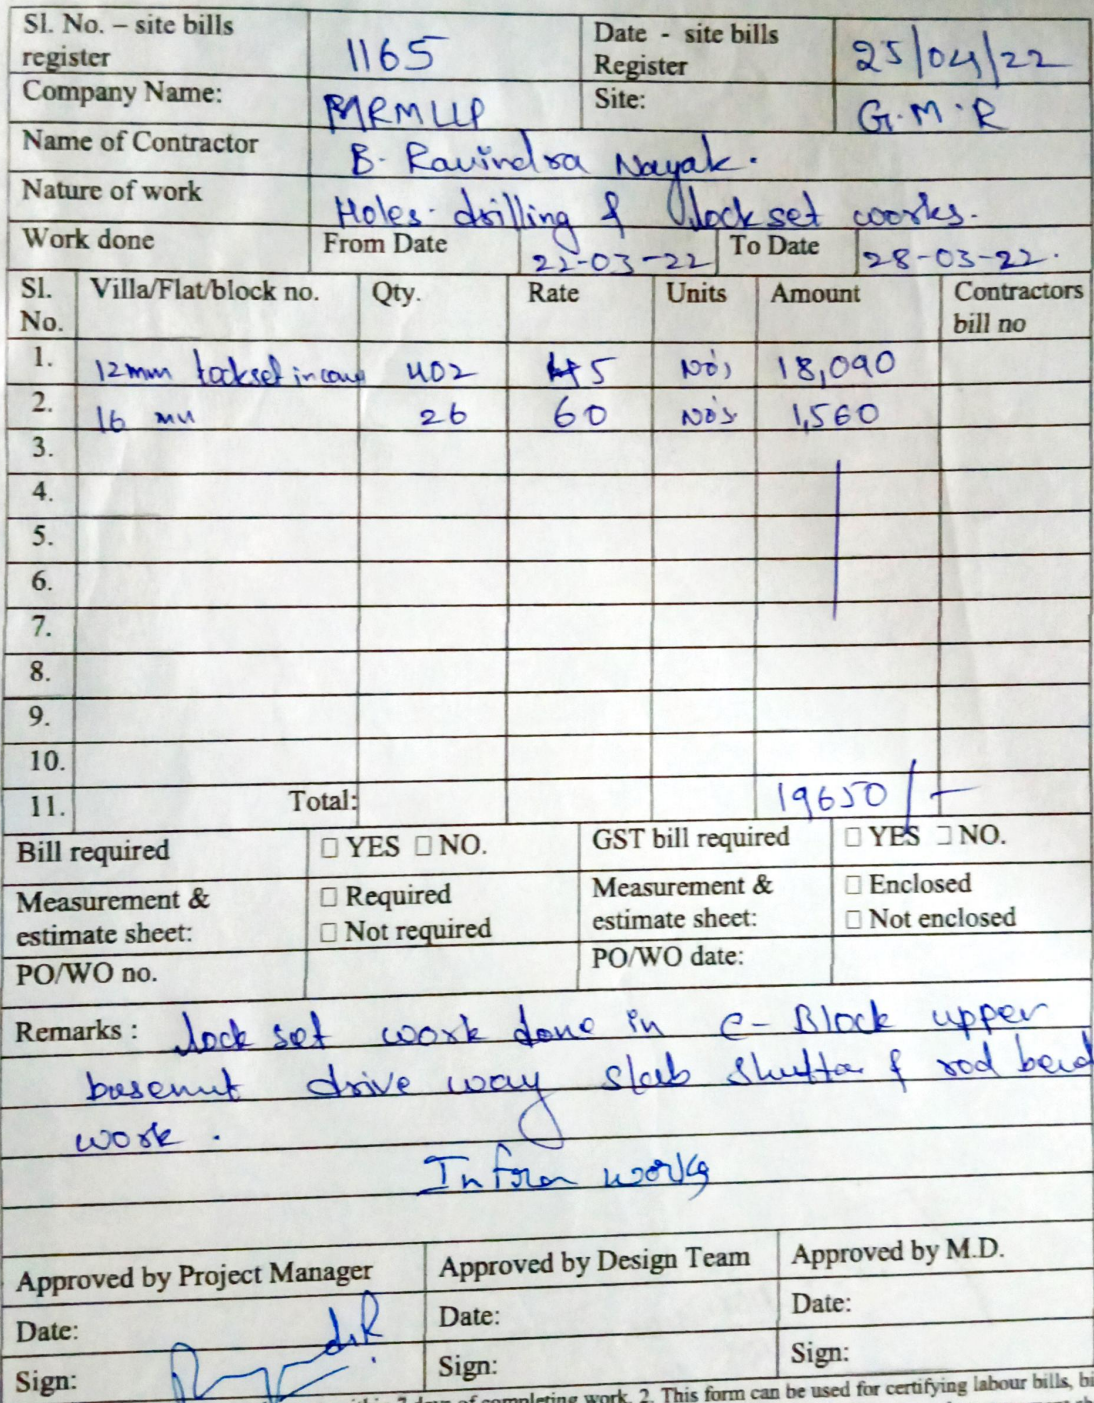 Sl. No. – site bills register 1165 Date - site bills Register 25/04/22
Company Name: MRMLLP Site: G.M.R
Name of Contractor B. Ravindra Nayak.
Nature of work Holes drilling & lockset works.
Work done From Date 22-03-22 To Date 28-03-22.
Sl. No. Villa/Flat/block no. Qty. Rate Units Amount Contractors bill no
1. 12mm lockset 402 45 No's 18,090
2. 16 mm 26 60 No's 1,560
3.
4.
5.
6.
7.
8.
9.
10.
11. Total: 19650/-
Bill required □ YES □ NO. GST bill required □ YES □ NO.
Measurement & estimate sheet: □ Required □ Not required Measurement & estimate sheet: □ Enclosed □ Not enclosed
PO/WO no. PO/WO date:
Remarks : lock set work done in C-Block upper
basemut drive way slab shutter & rod bend
work.
Infra works
Approved by Project Manager Approved by Design Team Approved by M.D.
Date: Date: Date:
Sign: Sign: Sign:
7 days of completing work. 2. This form can be used for certifying labour bills,